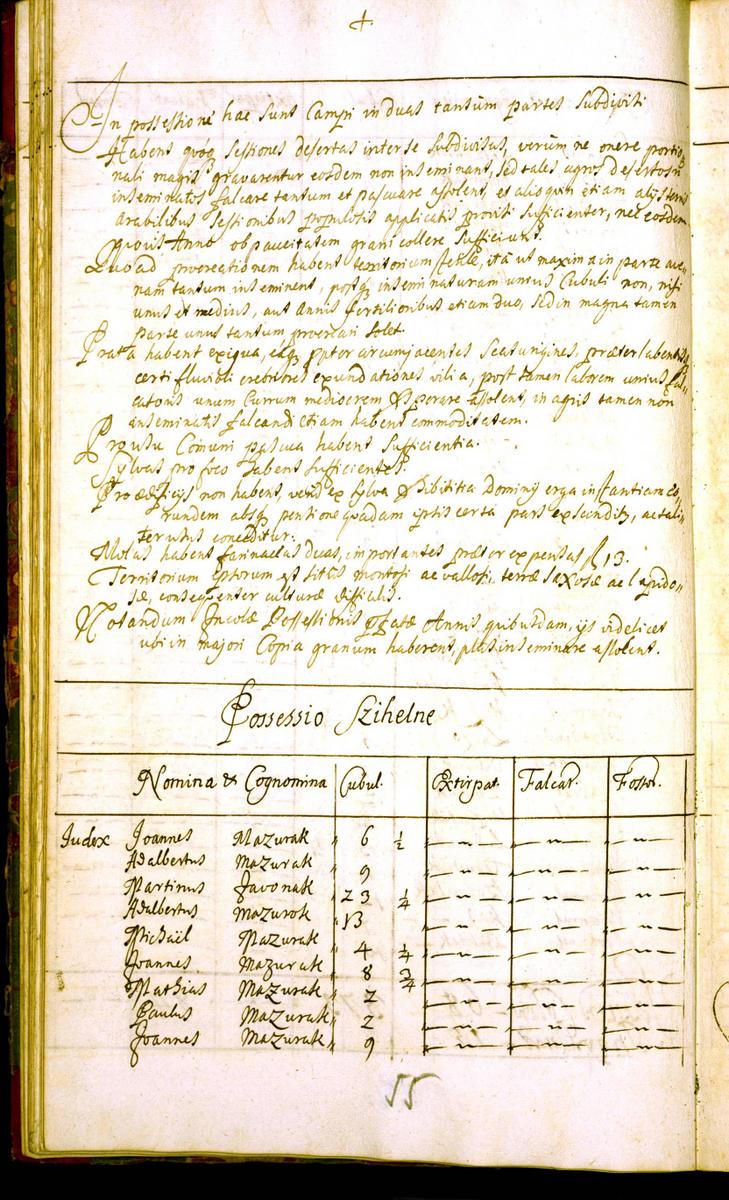 4.
In possessione hac sunt Campi in duas tantum partes Subdivisi
Habent quoq sessiones desertas inter se subdivisas, verum ne onere portio
nali magis gravarentur eosdem non inseminant, sed tales agros desertos
inseminatos falcare tantum et pascuare assolent, et alioquin etiam alijs terris
Arabilibus sessionibus populosis applicatis provisi sufficienter, nec eosdem
quovis Anno ob paucitatem grani collere sufficiunt.
Quoad procreationem habent territorium sterile, ita ut maxima in parte ave-
nam tantum inseminent, postq inseminaturam unius Cubuli non, nisi
unus et medius, aut Annis fertilioribus etiam duo, sed in magna tamen
parte unus tantum procreari solet.
Prata habent exigua, eaq ppter circumjacentes scaturigines, præter labentisq
certi fluvioli crebriores expundationes vilia, post tamen laborem unius fal-
catoris unum Currum mediocrem sperare assolent, in agris tamen non
inseminatis falcandi etiam habent commoditatem.
Pro usu Comuni pascua habent sufficientia.
Sylvas pro foco habent sufficientes.
Pro ædificijs non habent, verum ex sylva Dominij erga instantiam eo-
rundem absq pensione quadam ipsis certa pars exscinditur, ac tali-
ter usus conceditur.
Molas habent farinaceas duas, importantes præter expensas fl 13.
Territorium ipsorum est situs montosi ac vallosi, terræ saxosæ ac lapido-
sæ, consequenter culturæ difficilis.
Notandum Incolæ Possessionis Annis quibusdam, ijs videlicet
ubi in majori Copia granum haberent, plus inseminare assolent.
Possessio Szihelne
Nomina & Cognomina Cubul. Extirpat. Falcat. Fossor.
Iudex Joannes Mazurak " 6 1/2 — " — — " — — " —
Adalbertus Mazurak " 9 — " — — " — — " —
Martinus Javonak " 23 1/4 — " — — " — — " —
Adalbertus Mazurok " 13 — " — — " — — " —
Michaël Mazurak " 4 1/4 — " — — " — — " —
Joannes Mazurak " 8 3/4 — " — — " — — " —
Mathias Mazurak " 2 — " — — " — — " —
Paulus Mazurak " 2 — " — — " — — " —
Joannes Mazurak " 9 — " — — " — — " —
55